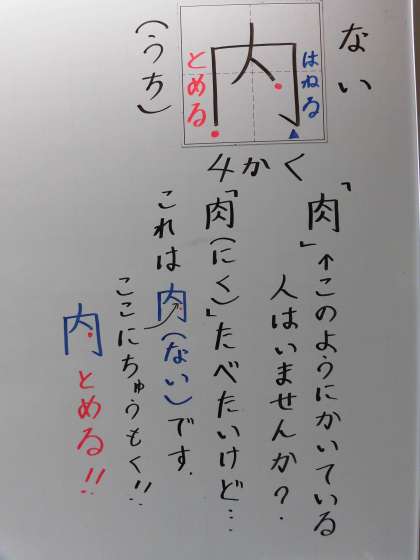 ない
はねる
内
とめる
(うち)
4かく
「肉」↑このようにかいている
人はいませんか?.
「肉(にく)」たべたいけど…
これは内(ない)です.
ここにちゅうもく!!
内とめる!!